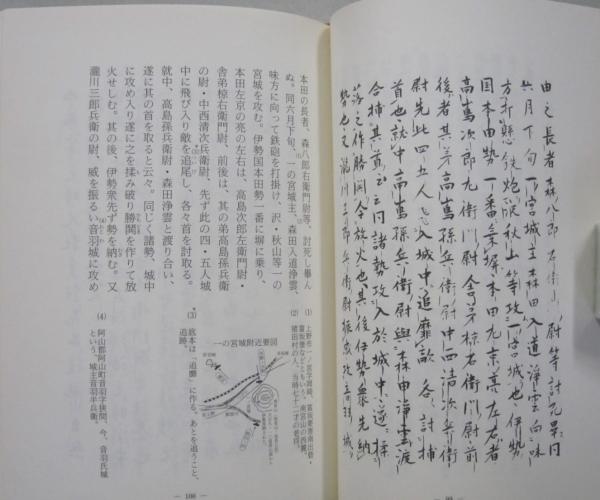 由之長者森八郎右衛門尉等討死畢同
六月下旬一ノ宮城主森田入道浄雲向味
方打懸鉄炮沢秋山等攻一ノ宮城也伊勢
国本田勢一番乗塀本田左京亮左右者
高嶌次郎左衛門尉舎弟椋右衛門尉前
後者其弟高嶌孫兵衛尉中西清次兵衛
尉先此四五人飛入城中追靡敵各討捕
首也就中高嶌孫兵衛尉與森田浄雲渡
合捕其首云々同諸勢攻入於城中遂揉
落之作勝鬨令放火也其後伊勢衆先納
勢也又瀧川三郎兵衛尉振威攻音羽城
本田の長者、森八郎右衛門尉等、討死し畢ん
ぬ。同六月下旬、一の宮城主、森田入道浄雲、
味方に向って鉄砲を打掛け、沢・秋山等一の
宮城を攻む。伊勢国本田勢一番に塀に乗り、
本田左京の亮の左右は、高島次郎左衛門尉・
舎弟椋右衛門尉、前後は、其の弟高島孫兵衛
の尉・中西清次兵衛尉、先ず此の四・五人城
中に飛び入り敵を追尾し、各々首を討取る。
就中、高島孫兵衛の尉・森田浄雲と渡り合い、
遂に其の首を取ると云々。同じく諸勢、城中
に攻め入り遂に之を揉み破り勝鬨を作りて放
火せしむ。其の後、伊勢衆先ず勢を納む。又
瀧川三郎兵衛の尉、威を振るい音羽城に攻め
(1) 上野市一ノ宮字岡崎
(2) 猪田村の人。当時七十一才の老将。
(3) 底本は「追靡」に作る。あとを追うこと、
追跡。
一の宮城附近要図
(4) 阿山郡阿山町音羽字狭間。今、音羽氏城
という。城主音羽半兵衛。
— 100 —
— 99 —